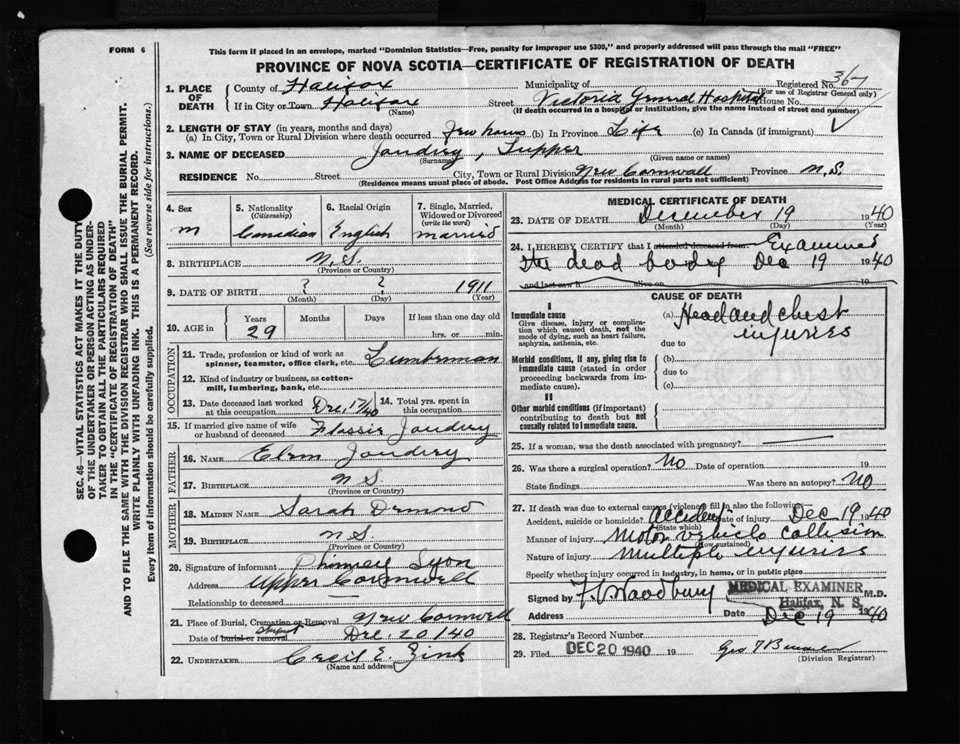 FORM 6
This form if placed in an envelope, marked "Dominion Statistics—Free, penalty for improper use $300," and properly addressed will pass through the mail "FREE"
PROVINCE OF NOVA SCOTIA—CERTIFICATE OF REGISTRATION OF DEATH
1. PLACE OF DEATH
County of Halifax Municipality of Registered No. 367
(For use of Registrar General only)
If in City or Town Halifax Street Victoria General Hospital House No.
(Name) (If death occurred in a hospital or institution, give the name instead of street and number)
2. LENGTH OF STAY (in years, months and days)
(a) In City, Town or Rural Division where death occurred few hours (b) In Province Life (c) In Canada (if immigrant)
3. NAME OF DECEASED Jaudrey, Tupper
(Surname) (Given name or names)
RESIDENCE No. Street City, Town or Rural Division New Cornwall Province N.S.
(Residence means usual place of abode. Post Office Address for residents in rural parts not sufficient)
4. Sex
M
5. Nationality
(Citizenship)
Canadian
6. Racial Origin
English
7. Single, Married, Widowed or Divorced
(write the word)
married
8. BIRTHPLACE N.S.
(Province or Country)
9. DATE OF BIRTH ? ? 1911
(Month) (Day) (Year)
10. AGE in Years Months Days If less than one day old
29 hrs. or min.
OCCUPATION
11. Trade, profession or kind of work as spinner, teamster, office clerk, etc. Lumberman
12. Kind of industry or business, as cotton-mill, lumbering, bank, etc.
13. Date deceased last worked at this occupation Dec. 17/40
14. Total yrs. spent in this occupation
15. If married give name of wife or husband of deceased Flossie Jaudrey
FATHER
16. NAME Elam Jaudrey
17. BIRTHPLACE N S
(Province or Country)
MOTHER
18. MAIDEN NAME Sarah
19. BIRTHPLACE N S
(Province or Country)
20. Signature of informant Phinney
Address Upper Cornwell
Relationship to deceased —
21. Place of Burial, Cremation or Removal New Cornwell
Date of burial or removal Dec. 20/40
22. UNDERTAKER Cecil E. Zink
(Name and address)
MEDICAL CERTIFICATE OF DEATH
23. DATE OF DEATH December 19 1940
(Month) (Day) (Year)
24. I HEREBY CERTIFY that I attended deceased from Examined
the dead body Dec 19 1940
and last saw h alive on 19
CAUSE OF DEATH
I
Immediate cause
Give disease, injury or complication which caused death, not the mode of dying, such as heart failure, asphyxia, asthenia, etc.
(a) Head and chest injuries
due to
Morbid conditions, if any, giving rise to immediate cause (stated in order proceeding backwards from immediate cause).
(b)
due to
(c)
II
Other morbid conditions (if important) contributing to death but not causally related to immediate cause.
25. If a woman, was the death associated with pregnancy?
26. Was there a surgical operation? No Date of operation 19
State findings Was there an autopsy? No
27. If death was due to external causes (violence) fill in also the following:
Accident, suicide or homicide? Accident Date of injury Dec 19 1940
(State which)
Manner of injury Motor vehicle collision
(How sustained)
Nature of injury Multiple injuries
Specify whether injury occurred in industry, in home, or in public place
Signed by F. V. Woodbury MEDICAL EXAMINER M.D.
Halifax, N. S.
Address Date Dec 19 1940
28. Registrar's Record Number
29. Filed DEC 20 1940 19
(Division Registrar)
SEC. 46—VITAL STATISTICS ACT MAKES IT THE DUTY OF THE UNDERTAKER OR PERSON ACTING AS UNDERTAKER TO OBTAIN ALL THE PARTICULARS REQUIRED IN THE "CERTIFICATE OF REGISTRATION OF DEATH" AND TO FILE THE SAME WITH THE DIVISION REGISTRAR WHO SHALL ISSUE THE BURIAL PERMIT.
WRITE PLAINLY WITH UNFADING INK. THIS IS A PERMANENT RECORD.
Every item of information should be carefully supplied. (See reverse side for instructions.)